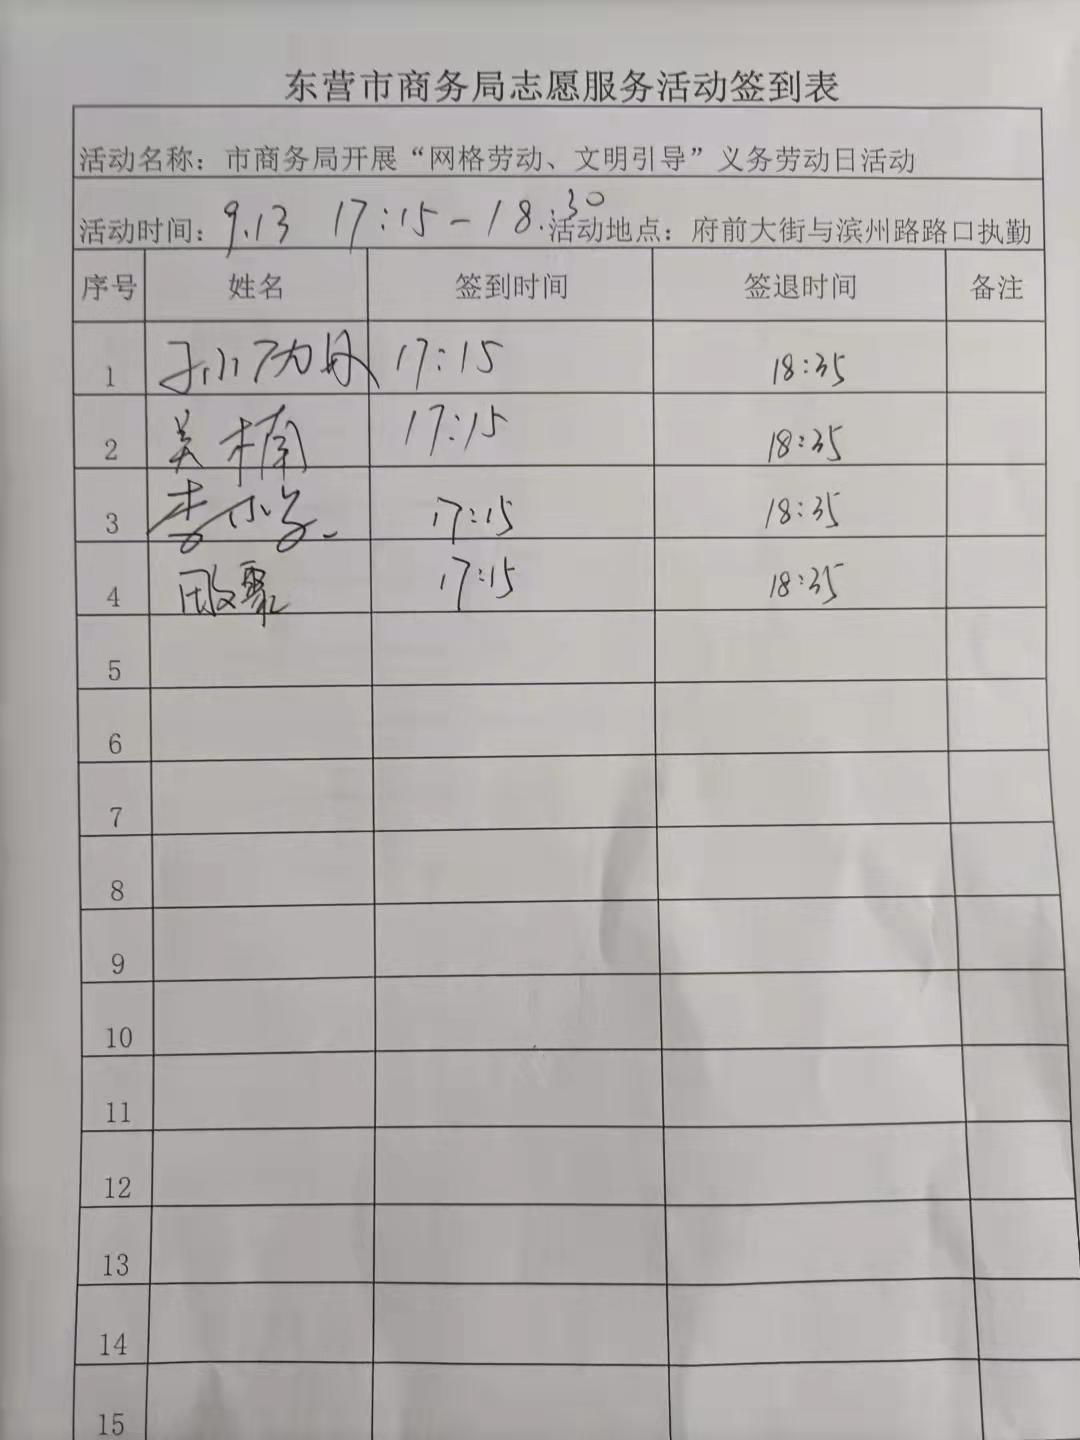 东营市商务局志愿服务活动签到表
活动名称：市商务局开展“网格劳动、文明引导”义务劳动日活动
活动时间：9.13 17:15-18:30 活动地点：府前大街与滨州路路口执勤
序号 姓名 签到时间 签退时间 备注
1 17:15 18:35
2 吴楠 17:15 18:35
3 17:15 18:35
4 17:15 18:35
5
6
7
8
9
10
11
12
13
14
15